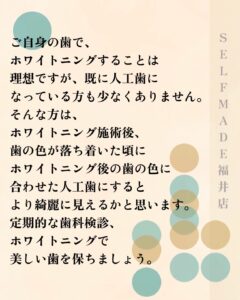 ご自身の歯で、
ホワイトニングすることは
理想ですが、既に人工歯に
なっている方も少なくありません。
そんな方は、
ホワイトニング施術後、
歯の色が落ち着いた頃に
ホワイトニング後の歯の色に
合わせた人工歯にすると
より綺麗に見えるかと思います。
定期的な歯科検診、
ホワイトニングで
美しい歯を保ちましょう。
SELFMADE福井店